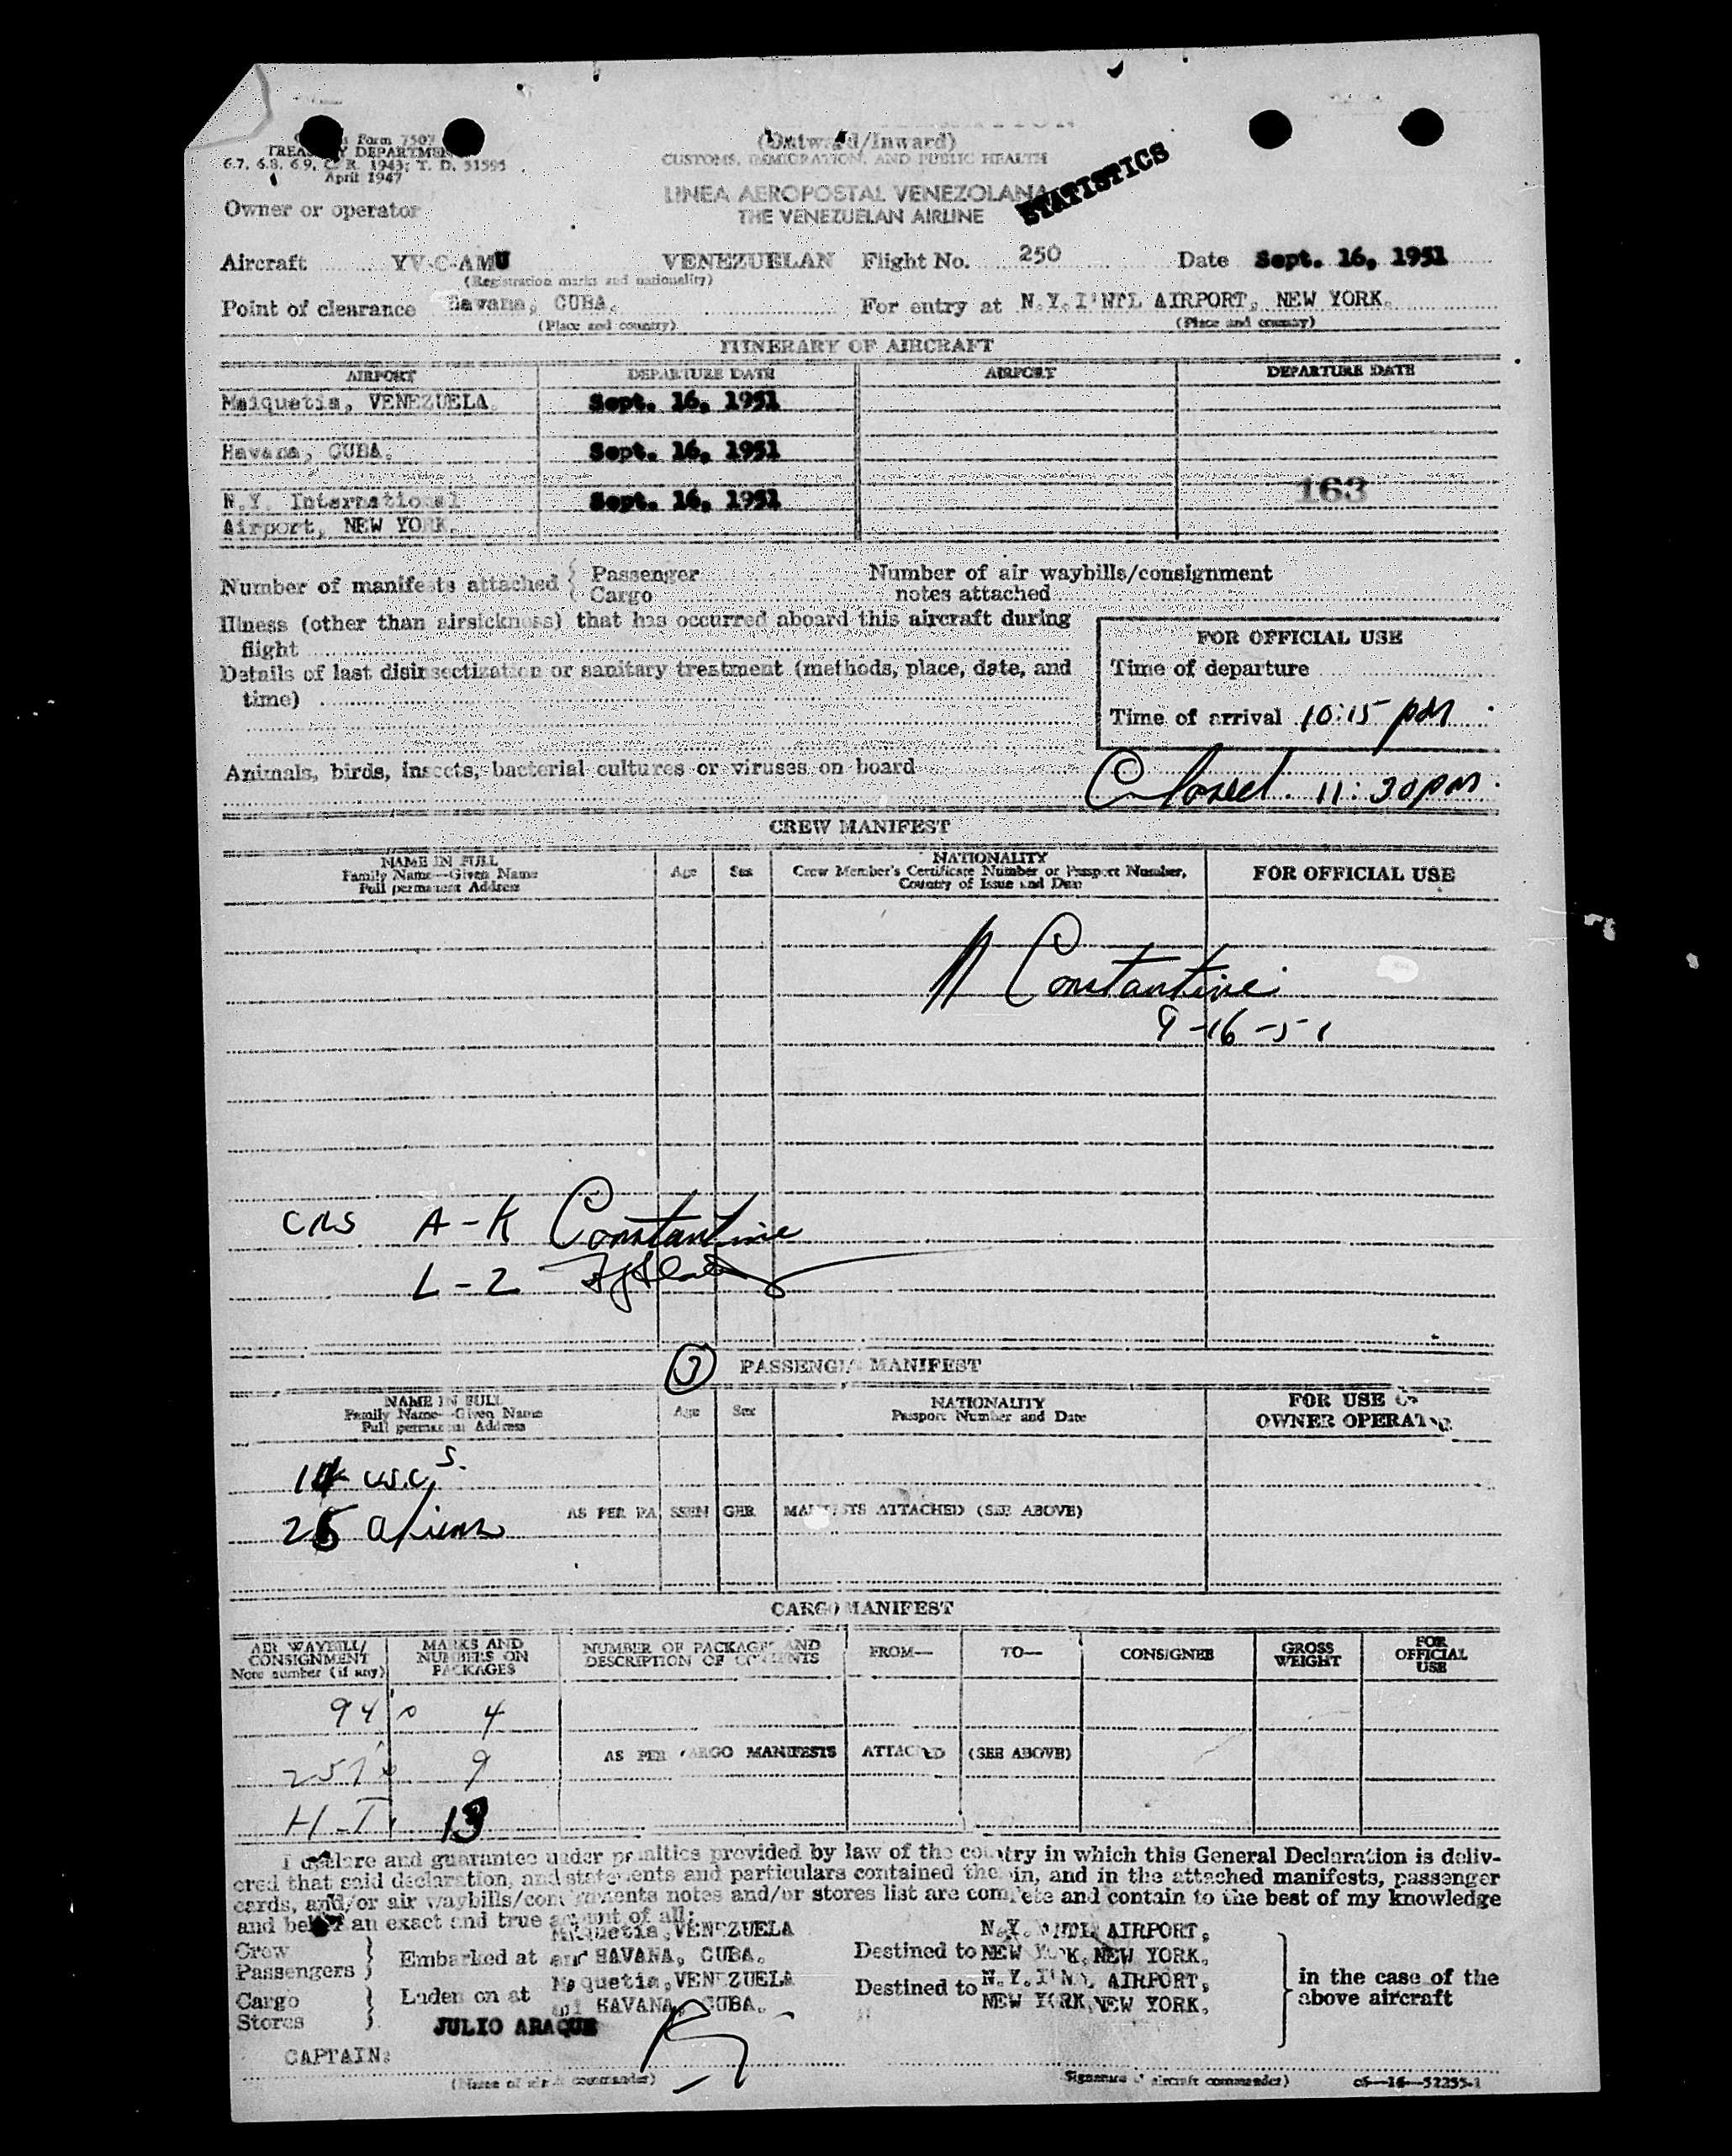 Form 7507
TREASURY DEPARTMENT
6.7, 6.8, 6.9, C. R. 1943; T. D. 51595
April 1947
(Outward/Inward)
CUSTOMS, IMMIGRATION, AND PUBLIC HEALTH
LINEA AEROPOSTAL VENEZOLANA
THE VENEZUELAN AIRLINE
STATISTICS
Owner or operator
Aircraft YV-C-AMU VENEZUELAN Flight No. 250 Date Sept. 16, 1951
(Registration marks and nationality)
Point of clearance Havana, CUBA. For entry at N.Y. I'NTL AIRPORT, NEW YORK.
(Place and country) (Place and country)
ITINERARY OF AIRCRAFT
AIRPORT DEPARTURE DATE AIRPORT DEPARTURE DATE
Maiquetia, VENEZUELA. Sept. 16, 1951
Havana, CUBA. Sept. 16, 1951
N.Y. International Sept. 16, 1951 163
Airport, NEW YORK.
Number of manifests attached { Passenger Number of air waybills/consignment
Cargo notes attached
Illness (other than airsickness) that has occurred aboard this aircraft during
flight
FOR OFFICIAL USE
Details of last disinsectization or sanitary treatment (methods, place, date, and
time)
Time of departure
Time of arrival 10:15 pm
Animals, birds, insects, bacterial cultures or viruses on board
Closed 11:30pm
CREW MANIFEST
NAME IN FULL Age Sex NATIONALITY FOR OFFICIAL USE
Family Name—Given Name Crew Member's Certificate Number or Passport Number,
Full permanent Address Country of Issue and Date
N Constantine
9-16-51
A-K Constantine
L-Z
PASSENGER MANIFEST
NAME IN FULL Age Sex NATIONALITY FOR USE OF
Family Name—Given Name Passport Number and Date OWNER OPERATOR
Full permanent Address
14 USC's.
AS PER PASSENGER MANIFESTS ATTACHED (SEE ABOVE)
aliens
CARGO MANIFEST
AIR WAYBILL/ MARKS AND NUMBER OF PACKAGES AND FROM— TO— CONSIGNEE GROSS FOR
CONSIGNMENT NUMBERS ON DESCRIPTION OF CONTENTS WEIGHT OFFICIAL
Note number (if any) PACKAGES USE
94 4
AS PER CARGO MANIFESTS ATTACHED (SEE ABOVE)
9
13
I declare and guarantee under penalties provided by law of the country in which this General Declaration is deliv-
ered that said declaration, and statements and particulars contained therein, and in the attached manifests, passenger
cards, and/or air waybills/consignments notes and/or stores list are complete and contain to the best of my knowledge
and belief an exact and true amount of all:
Crew
Passengers } Embarked at Maiquetia, VENEZUELA
and HAVANA, CUBA. Destined to N.Y. I'NTL AIRPORT,
NEW YORK, NEW YORK.
Cargo
Stores } Laden on at Maiquetia, VENEZUELA
and HAVANA, CUBA. Destined to N.Y. I'NTL AIRPORT,
NEW YORK, NEW YORK.
} in the case of the
above aircraft
JULIO ARAQUE
CAPTAIN:
(Name of aircraft commander) Signature of aircraft commander) c6—16—52255-1